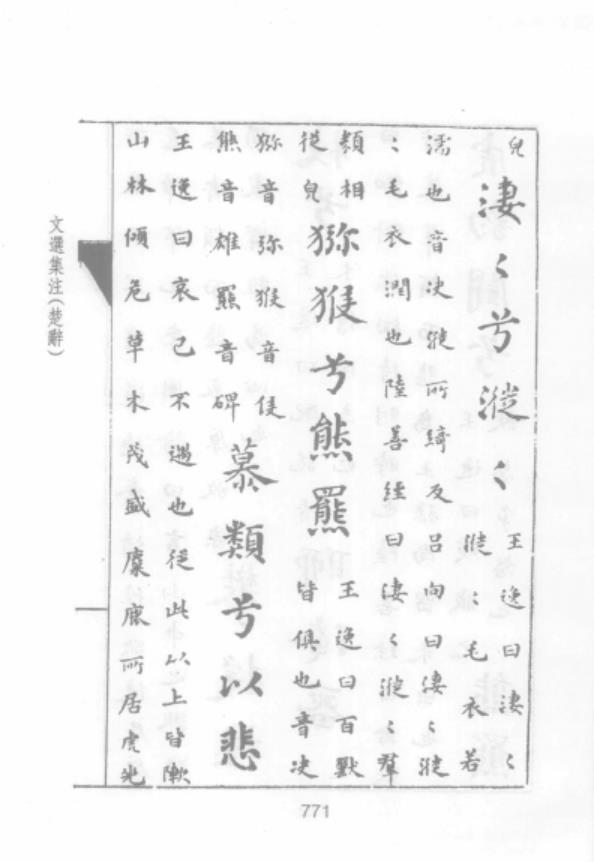 皃
淒〻兮漇〻
王逸曰淒〻
漇〻毛衣若
濡也音决漇所綺反呂向曰淒〻漇
〻毛衣潤也陸善經曰淒〻漇〻羣
類相
從皃
獼猴兮熊羆
王逸曰百獸
皆俱也音决
獼音弥猴音侯
熊音雄羆音碑
慕類兮以悲
王逸曰哀己不遇也從此以上皆陳
山林傾危草木茂盛麋鹿所居虎兕
文選集注（楚辭）
771